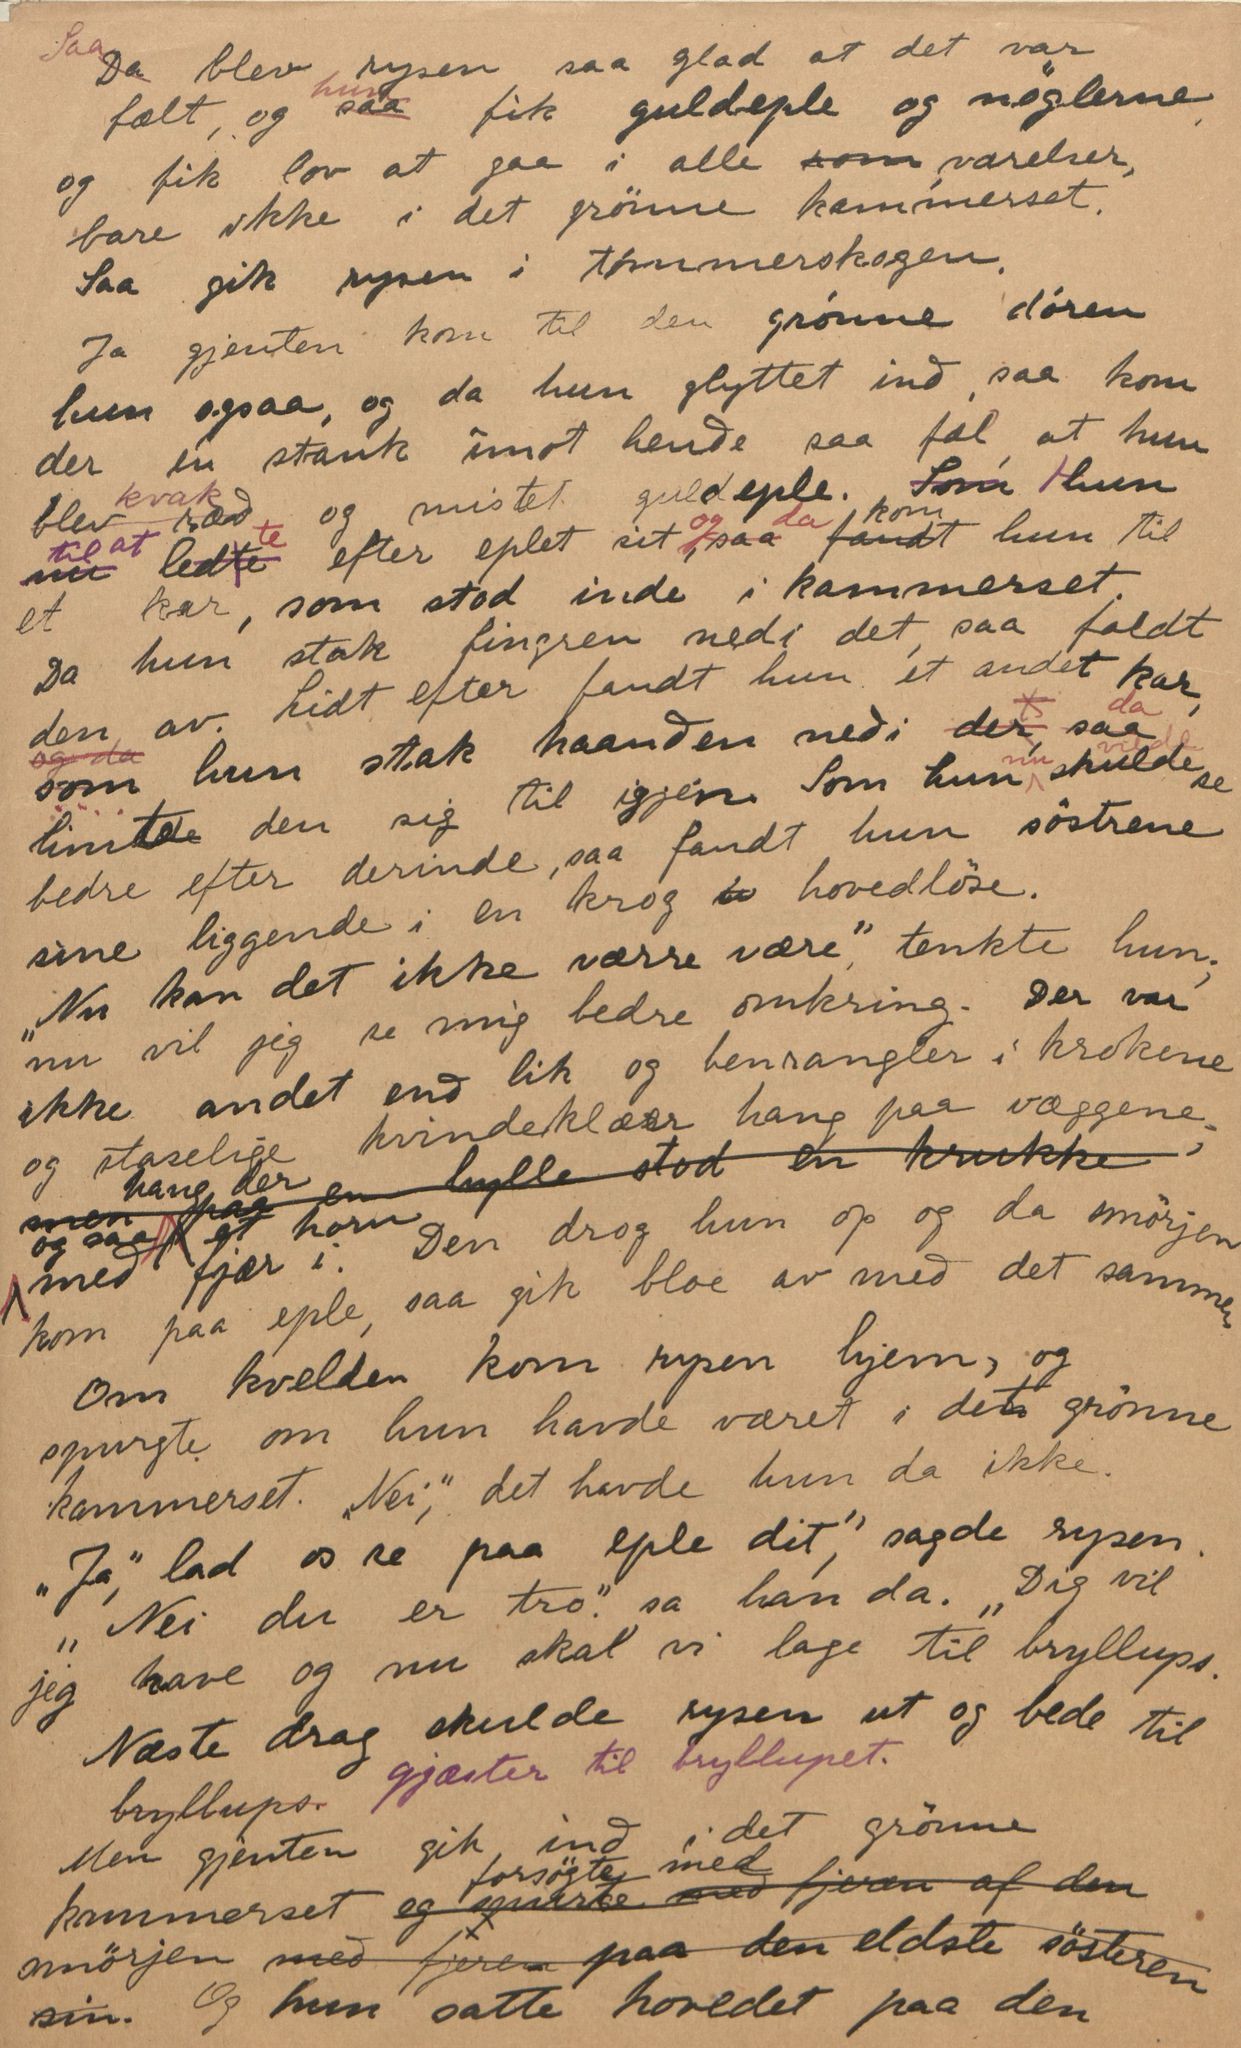 Saa
Da blev rysen saa glad at det var
hun
fælt, og saa fik guldeple og nöglerne,
og fik lov at gaa i alle som værelser,
bare ikke i det grönne kammerset.
Saa gik rysen i tömmerskogen.
Ja gjenten kom til den grönne dören
hun ogsaa, og da hun glyttet ind, saa kom
der en stank imot hende saa fæl, at hun
kvak
blev ræd og mistet guldeple. Som hun
til at te og da kom
nu ledte efter eplet sit, saa fandt hun til
et kar, som stod inde i kammerset.
Da hun stak fingren nedi det, saa faldt
den av. Lidt efter fandt hun et andet kar,
og da ts da
som hun stak haanden nedi der, saa
nu vilde
limte den sig til igjen. Som hun skulde se
bedre efter derinde, saa fandt hun söstrene
sine liggende i en krog hovedlöse.
"Nu kan det ikke værre være", tenkte hun;
"nu vil jeg se mig bedre omkring. Der var
ikke andet end lik og benrangler i krokene
og staselige kvindeklær hang paa væggene;
hang der
men paa en hylle stod en krukke
og saa et horn
med fjær i. Den drog hun op og da smörjen
kom paa eple, saa gik bloe av med det samme.
Om kvelden kom rysen hjem, og
spurgte om hun havde været i det grönne
kammerset. "Nei", det havde hun da ikke.
"Ja", lad os se paa eple dit", sagde rysen.
"Nei du er tro". sa han da. "Dig vil
jeg have og nu skal vi lage til bryllups.
Næste drag skulde rysen ut og bede til
gjæster til bryllupet.
bryllups.
Men gjenten gik ind i det grönne
forsögte med
kammerset og smurte med fjeren af den
smörjen med fjeren paa den eldste sösteren
sin. Og hun satte hovedet paa den